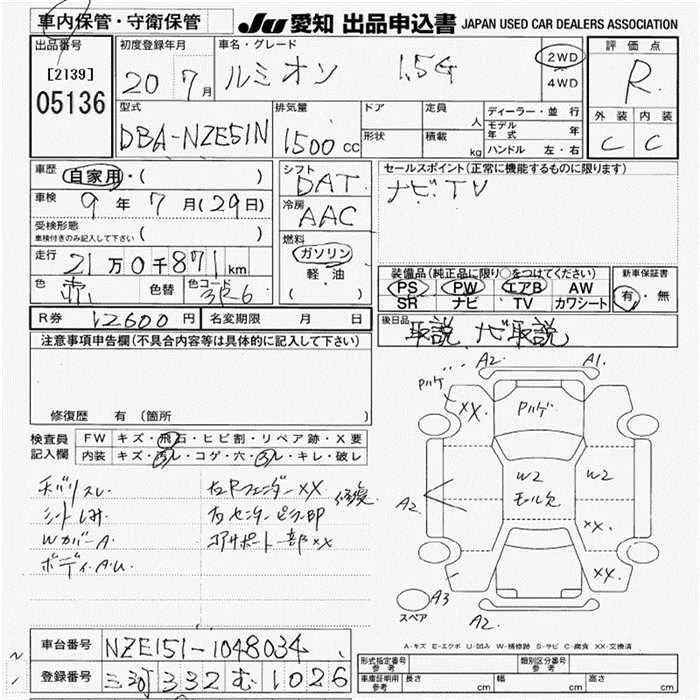 車内保管・守衛保管
JU 愛知 出品申込書 JAPAN USED CAR DEALERS ASSOCIATION
出品番号 [2139] 05136
初度登録年月 20 7月
車名・グレード ルミオン 1.5G
2WD 4WD
評価点 R
外装 内装
C C
型式 DBA-NZE151N
排気量 1500cc
ドア 形状
定員 人
積載 kg
ディーラー・並行
モデル年式 年
ハンドル 左・右
車歴 自家用・( )
車検 9年7月(29日)
受検形態 車検付きのみ記入して下さい ( )
走行 21万0千871km
色 色替 色コード 3R-6
シフト DAT
冷房 AAC
燃料 ガソリン 軽・油 ( )
セールスポイント(正常に機能するものに限ります)
ナビTV
装備品(純正品に限り○をつけてください)
PS PW エアB AW
SR ナビ TV カワシート
新車保証書 有・無
R券 12600円 名変期限 月 日
後日品 取説 ナビ取説
注意事項申告欄(不具合内容等は具体的に記入して下さい)
修復歴 有 (箇所 )
検査員記入欄
FW キズ・飛石・ヒビ割・リペア跡・X要
内装 キズ・汚レ・コゲ・穴・スレ・キレ・破レ
天バリスレ 右Fフェンダーxx 修復
シートしみ 右センターピラー部
WカバーA コアサポート一部xx
ボディ.A.U
A2. A1.
xx.
W2 W2
モール欠
A2
xx.
xx.
A3
A2.
スペア
A-キズ E-エクボ U-凹み W-補修跡 S-サビ C-腐食 XX-交換済
車台番号 NZE151-1048034
登録番号 三河 332 む 1026
形式指定番号 参考 類別区分番号 参考
車庫証明用 参考 長さ cm 幅 cm 高さ cm